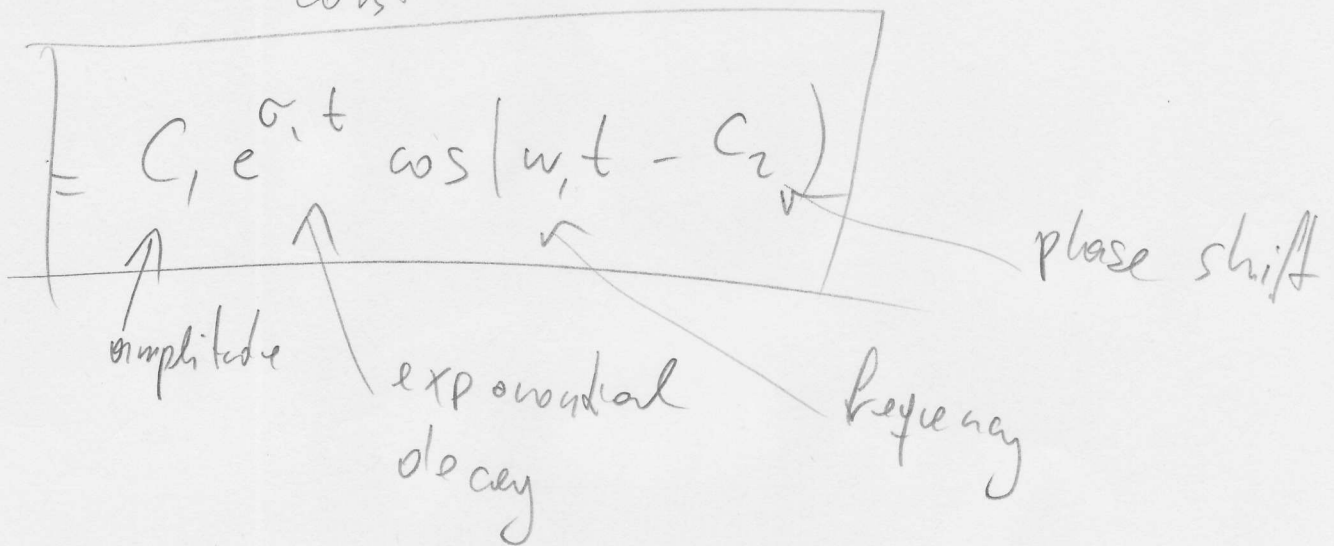 = C₁ e^{σ₁t} cos(ω₁t - C₂)
phase shift
amplitude
exponential
decay
frequency